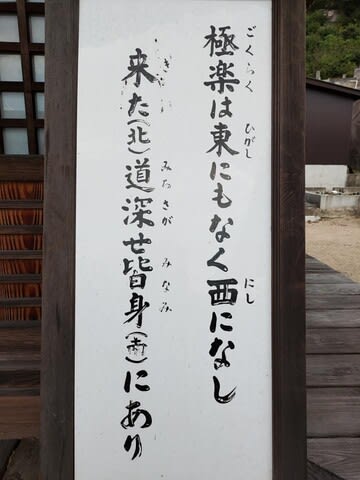 極楽は東にもなく西になし
ごくらく ひがし にし
来た(北)道深せ皆身(南)にあり
みちさが みなみ